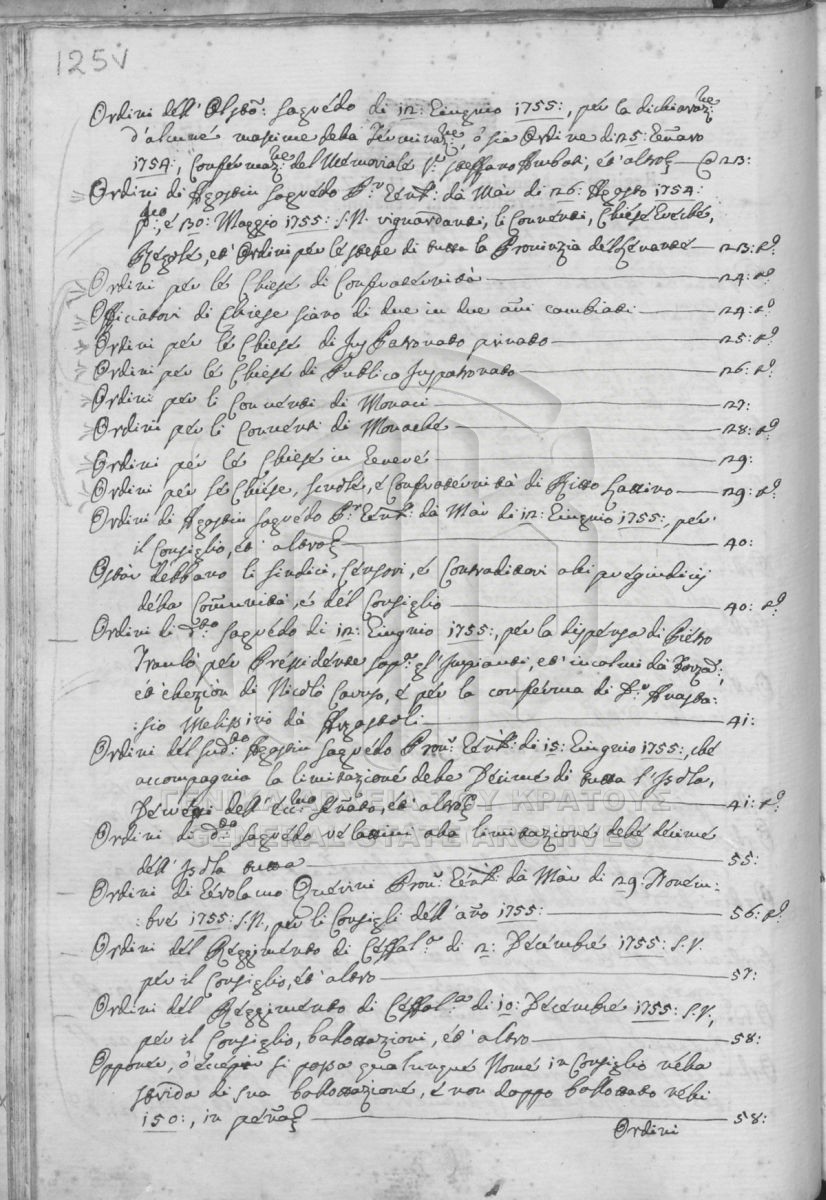 125v
Ordini dell' Sagredo di 12: Giugno 1755:, per la dichiaraz:ne
d'alcune massime della Terminaz:ne, ò sia Ordine di 25: Genaro
1754, Confermaz:ne del Memoriale Steffano, et altro 23:
Ordini di Agostin Sagredo Gen:l dà Mar di 26: Agosto 1754:
p:mo, e 30: Maggio 1755: S.N. riguardanti, li Conventi, Chiese Greche,
Regole, et Ordini per le stesse di tutta la Provinzia del Levante 23: t:o
Ordini per le Chiese di Confraternità 24: t:o
Officiatori di Chiese siano di due in due anni cambiati 24: t:o
Ordini per le Chiese di Juspatronato privato 25: t:o
Ordini per le Chiese di Publico Juspatronato 26: t:o
Ordini per li Conventi di Monaci 27:
Ordini per li Conventi di Monache 28: t:o
Ordini per le Chiese in genere 29:
Ordini per le Chiese, Scuole, e Confraternità di Ritto Lattino 29: t:o
Ordini di Agostin Sagredo P:r Gen:l dà Mar di 12: Giugno 1755:, per
il Consiglio, et altro 40:
Ostar debbano li Sindici, Censori, e Contradittori alli pregiudicij
della Comunità, e del Consiglio 40: t:o
Ordini di d:tto Sagredo di 12: Giugno 1755:, per la dispensa di
per Pressidente sop:a gl'
et elezion di Nicolò, e per la conferma di Anasta:
:sio Melissinò dà Argostoli 41:
Ordini del sud:tto Agostin Sagredo Prov:r Gen:l di 15: Giugno 1755:, che
accompagna la limitazione delle Decime di tutta l'Isola,
dell' Ecc:mo Senato, et altro 41: t:o
Ordini di d:tto Sagredo relattivi alla limitazione delle decime
dell'Isola tutta 55:
Ordini di Gerolamo Querini Prov:r Gen:l dà Mar di 29: Novem:
:bre 1755: S.N., per li Consigli dell'anno 1755: 56: t:o
Ordini del Reggimento di Ceffal:a di 2: Decembre 1755: S.V.
per il Consiglio, et altro 57:
Ordini del Reggimento di Ceffal:a di 10: Decembre 1755: S.V.,
per il Consiglio, ballottazioni, et altro 58:
Opponer, ò eccepir si possa qualunque Nome in Consiglio nella
strida di sua ballottazione, e non doppo ballottato nelli
150:, in 58:
Ordini
ΓΕΝΙΚΑ ΑΡΧΕΙΑ ΤΟΥ ΚΡΑΤΟΥΣ
GENERAL STATE ARCHIVES